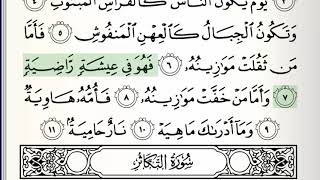 يَوْمَ يَكُونُ النَّاسُ كَالْفَرَاشِ الْمَبْثُوثِ ٤
وَتَكُونُ الْجِبَالُ كَالْعِهْنِ الْمَنفُوشِ ٥ فَأَمَّا
مَن ثَقُلَتْ مَوَازِينُهُ ٦ فَهُوَ فِي عِيشَةٍ رَّاضِيَةٍ
٧ وَأَمَّا مَنْ خَفَّتْ مَوَازِينُهُ ٨ فَأُمُّهُ هَاوِيَةٌ
٩ وَمَا أَدْرَاكَ مَا هِيَهْ ١٠ نَارٌ حَامِيَةٌ ١١
سُورَةُ التَّكَاثُرِ